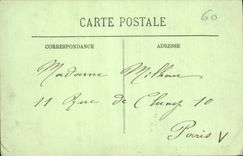 CARTE POSTALE
60
CORRESPONDANCE ADRESSE
Madame Milhau
11 Rue de Cluny 10
Paris V